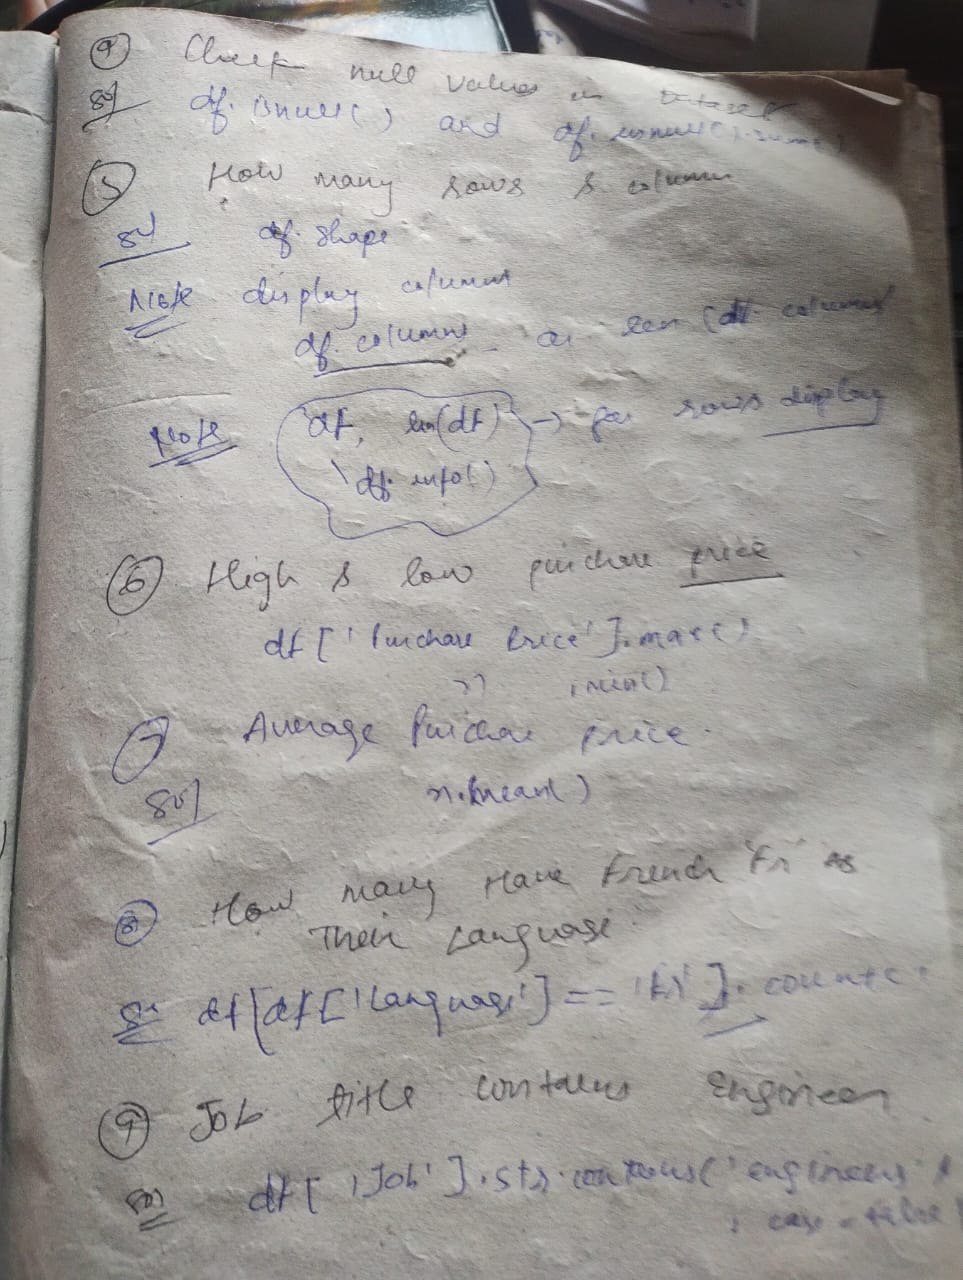 ④ Check null values in Dataset
Sol df.isnull() and df.isnull().sum()
⑤ How many rows & column
Sol df.shape
Note display columns
df.columns or len(df.columns
Note df, len(df) → for rows display
df.info()
⑥ High & low purchase price
df['Purchase Price'].max()
" .min()
⑦ Average Purchase price.
Sol ".mean()
⑧ How many Have French 'fr' as
Their Language.
Sol df[df['Language']=='fr'].count
⑨ Job title contains Engineer
Sol df['Job'].str.contains('engineer'
, case = false